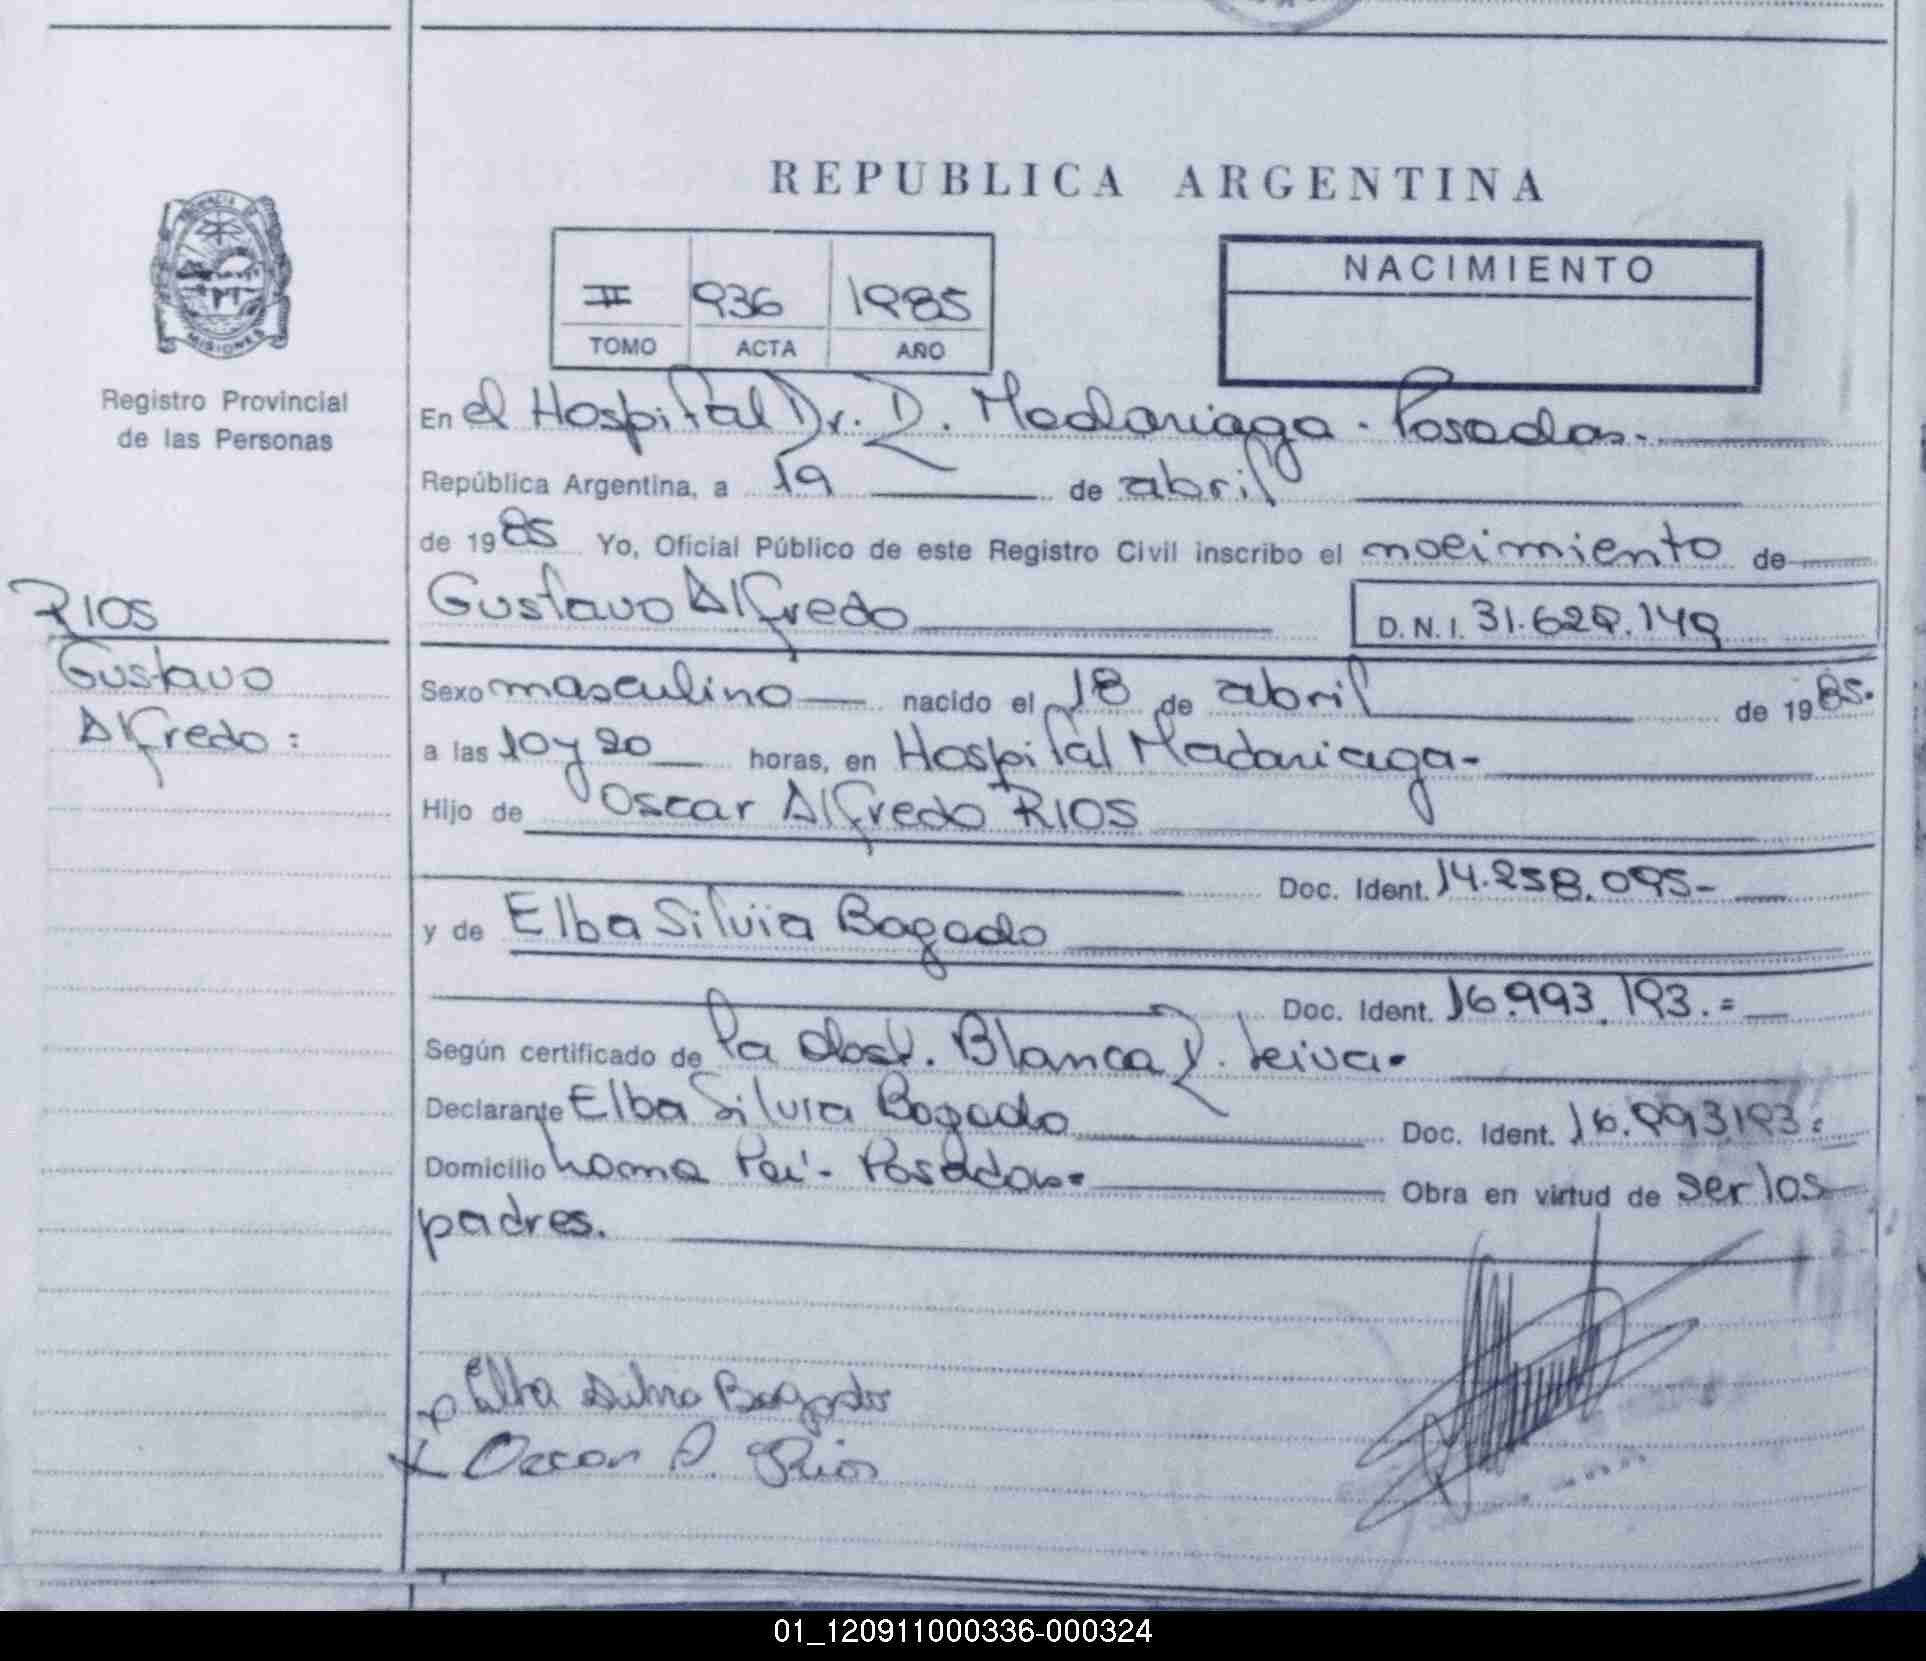 REPUBLICA ARGENTINA
PROVINCIA DE
MISIONES
Registro Provincial
de las Personas
II 936 1985
TOMO ACTA AÑO
NACIMIENTO
En el Hospital Dr. R. Madariaga - Posadas.
República Argentina, a 19 de abril
de 1985 Yo, Oficial Público de este Registro Civil inscribo el nacimiento de
Gustavo Alfredo D.N.I. 31.629.149
RIOS
Gustavo
Alfredo :
Sexo masculino nacido el 18 de abril de 1985.
a las 10 y 20 horas, en Hospital Madariaga-
Hijo de Oscar Alfredo RIOS
Doc. Ident. 14.258.095-
y de Elba Silvia Bogado
Doc. Ident. 16.993.193.=
Según certificado de la obst. Blanca R. Leiva.
Declarante Elba Silvia Bogado Doc. Ident. 16.993193.
Domicilio Posadas. Obra en virtud de ser los
padres.
Elba Silvia Bogado
x Oscar A. Rios
01_120911000336-000324